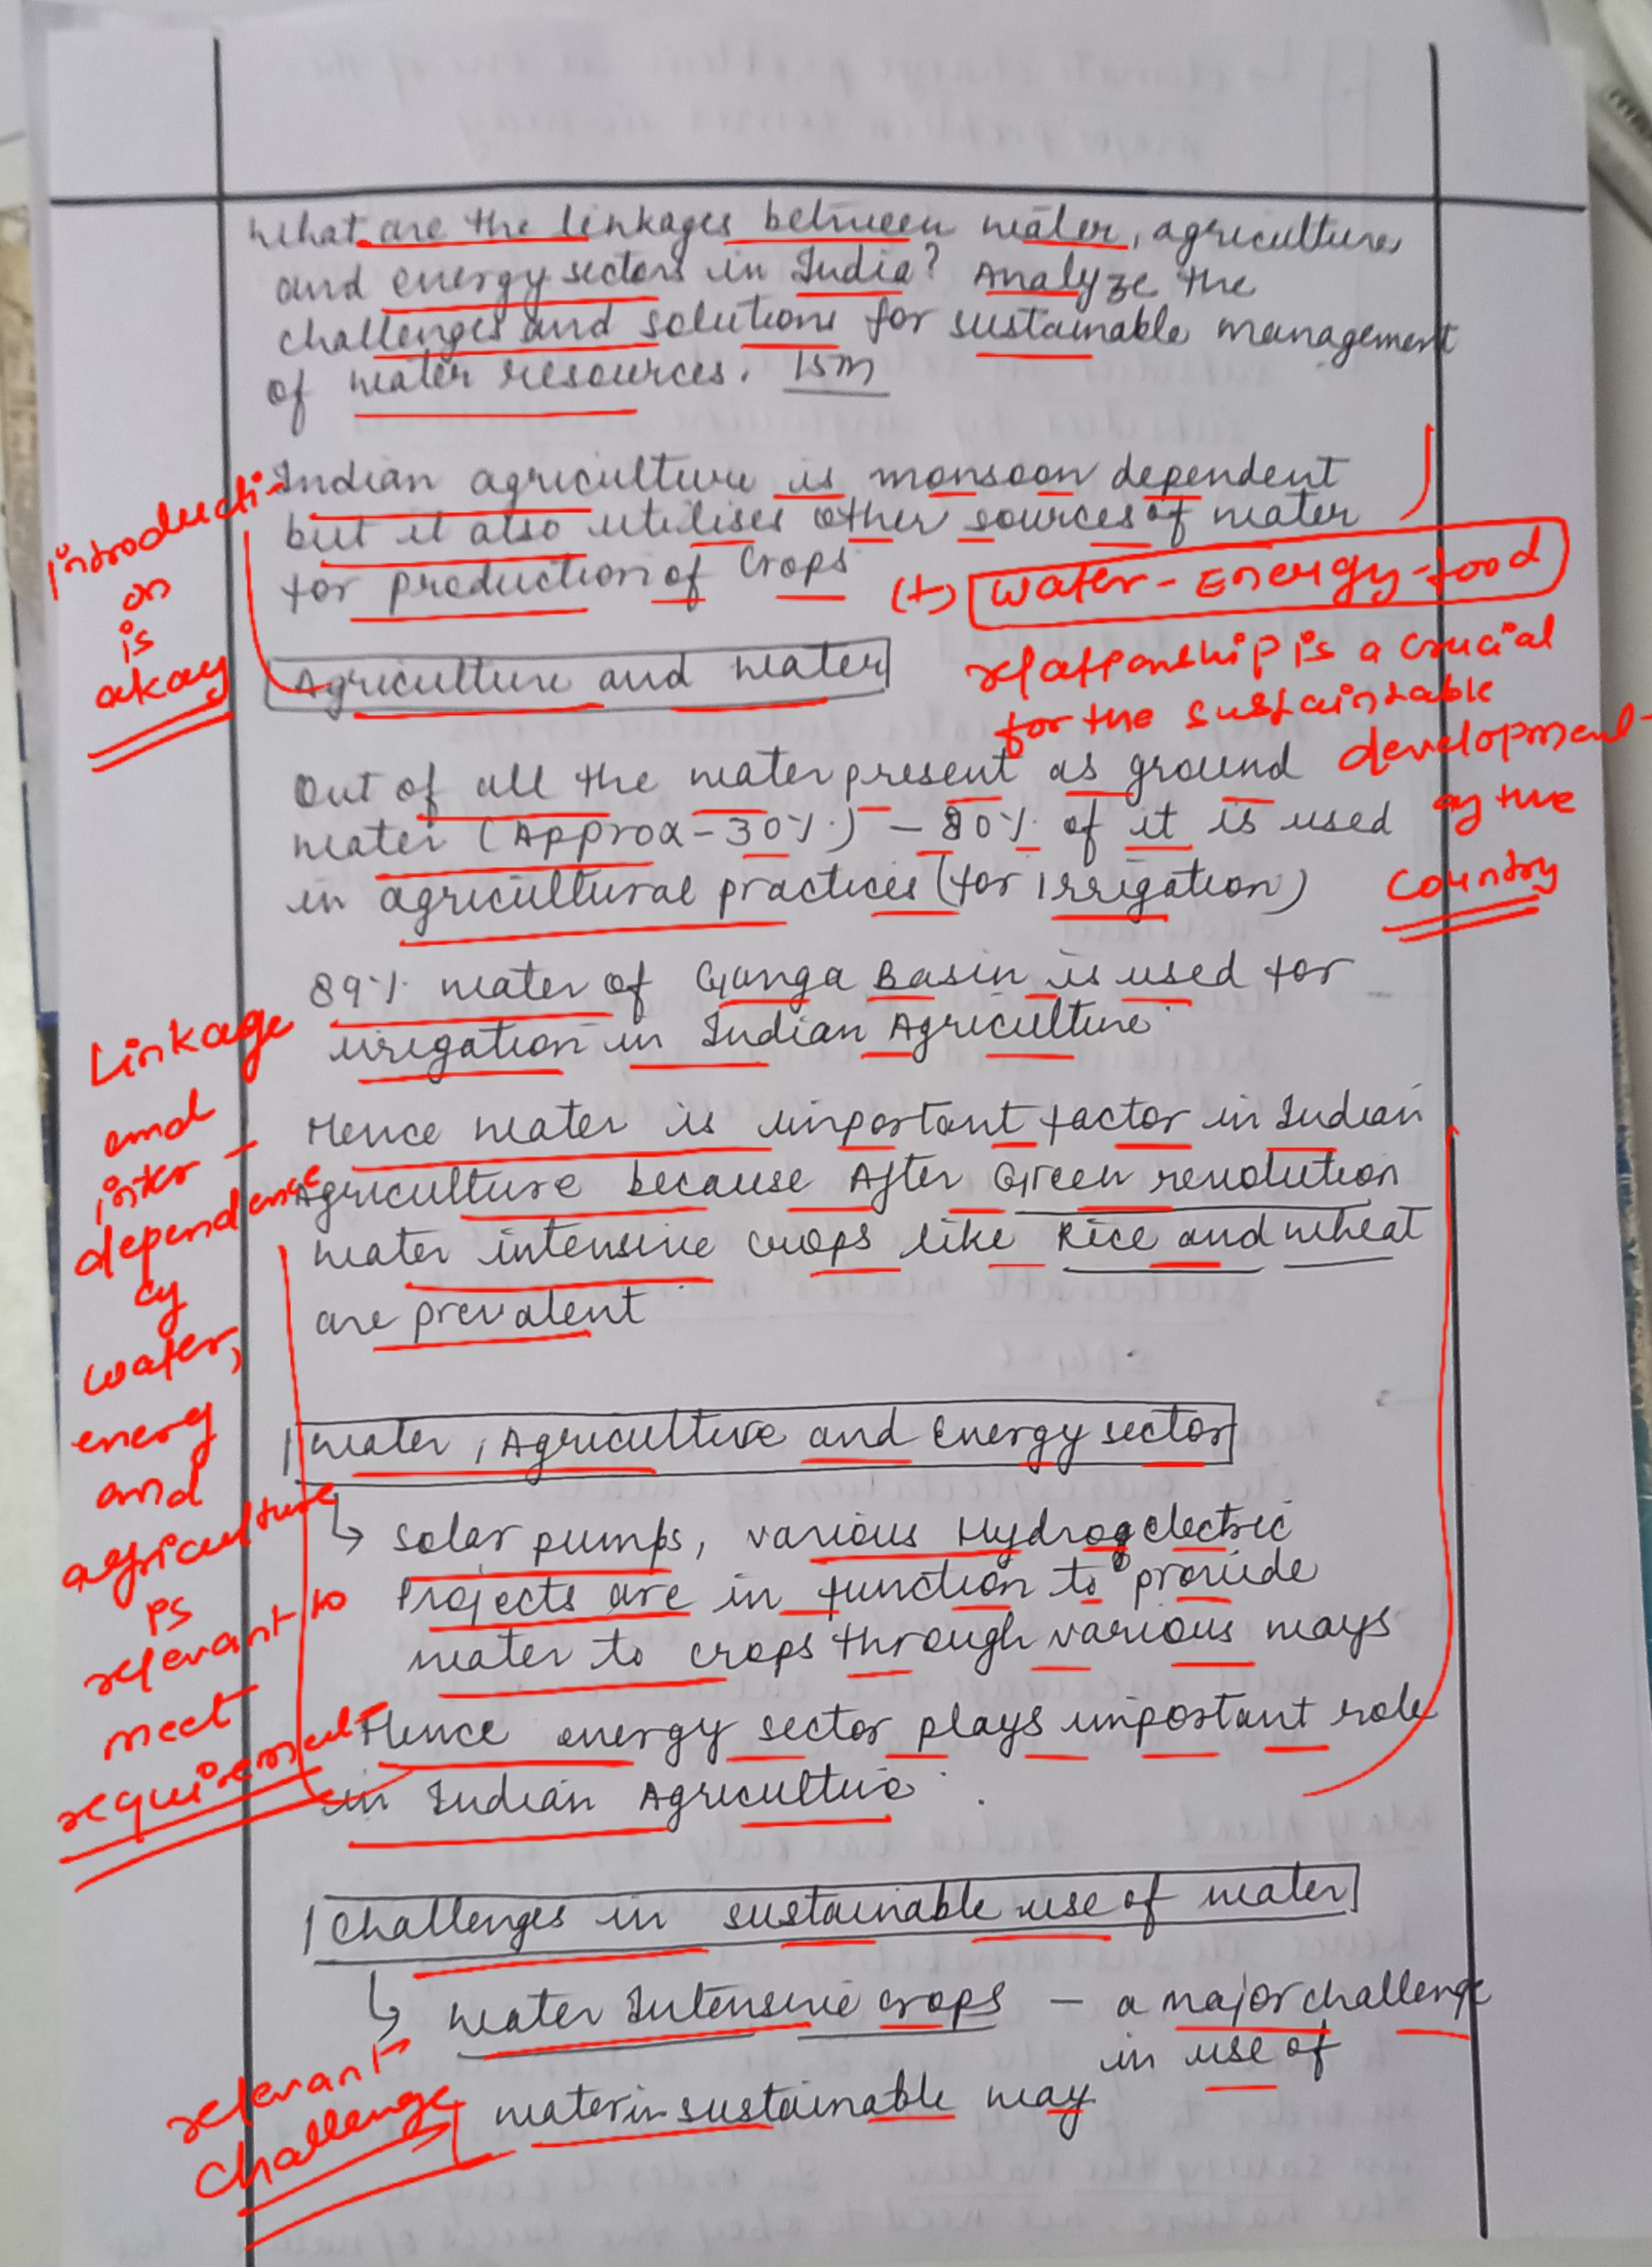 What are the linkages between water, agriculture,
and energy sectors in India? Analyze the
challenges and solutions for sustainable management
of water resources. 15m
Indian agriculture is monsoon dependent
but it also utilises other sources of water
for production of Crops
introducti-
on
is
okay
(+) Water-Energy-food
relationship is a crucial
for the sustainable
development
of the
country
Agriculture and water
Out of all the water present as ground
water (Approx-30%) - 80% of it is used
in agricultural practices (for Irrigation)
89% water of Ganga Basin is used for
irrigation in Indian Agriculture.
Hence water is important factor in Indian
Agriculture because After Green revolution
water intensive crops like Rice and wheat
are prevalent
Linkage
and
inter-
dependence
of
water,
energy
and
agriculture
is
relevant to
meet
requirement
water, Agriculture and Energy sector
↳ Solar pumps, various Hydro electric
Projects are in function to provide
water to crops through various ways
Hence energy sector plays important role
in Indian Agriculture.
Challenges in sustainable use of water
↳ water Intensive crops - a major challenge
in use of
water in sustainable way
relevant
challenge